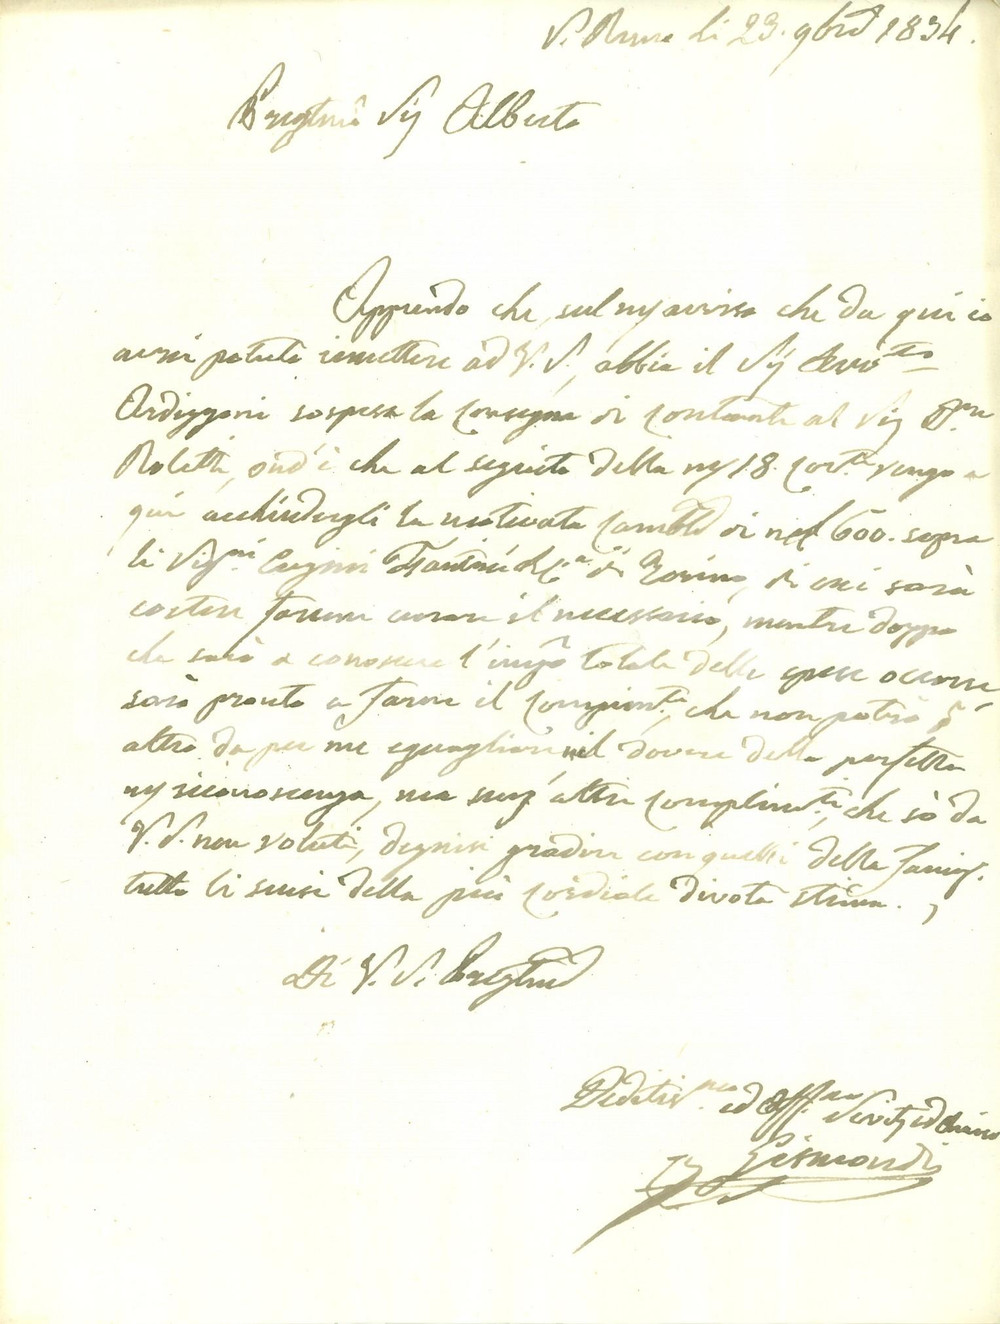 S. Remo li 23. 9bre 1834.
Preg.mo Sig Alberto
Apprendo che, sul mio avviso che da qui io
avrei potuto rimettere ad V. S., abbia il Sig
Ardizzoni sospesa la consegna di contante al Sig
Roletti, ond'è che al seguito della mia 18. corr.te vengo
qui acchiudergli la motivata camble di n 600. sopra
li Sig.ri Cugini Fantini & C.a di Torino, di cui sarà
cortese farne curare il necessario, mentre doppo
che sarò a conoscere l'imp.o totale delle spese occorse
sarò pronto a farne il compim.to, che non potrò p
altro da per me eguagliare il dovere della perfetta
mia riconoscenza, ma senz'altri complim.ti, che sò da
V. S. non voluti, degnisi gradire con quelli della famig.
tutta li sensi della più cordiale divota stima.
Di V. S. Preg.ma
ed Aff.mo Servit. ed Amico
Gismondi